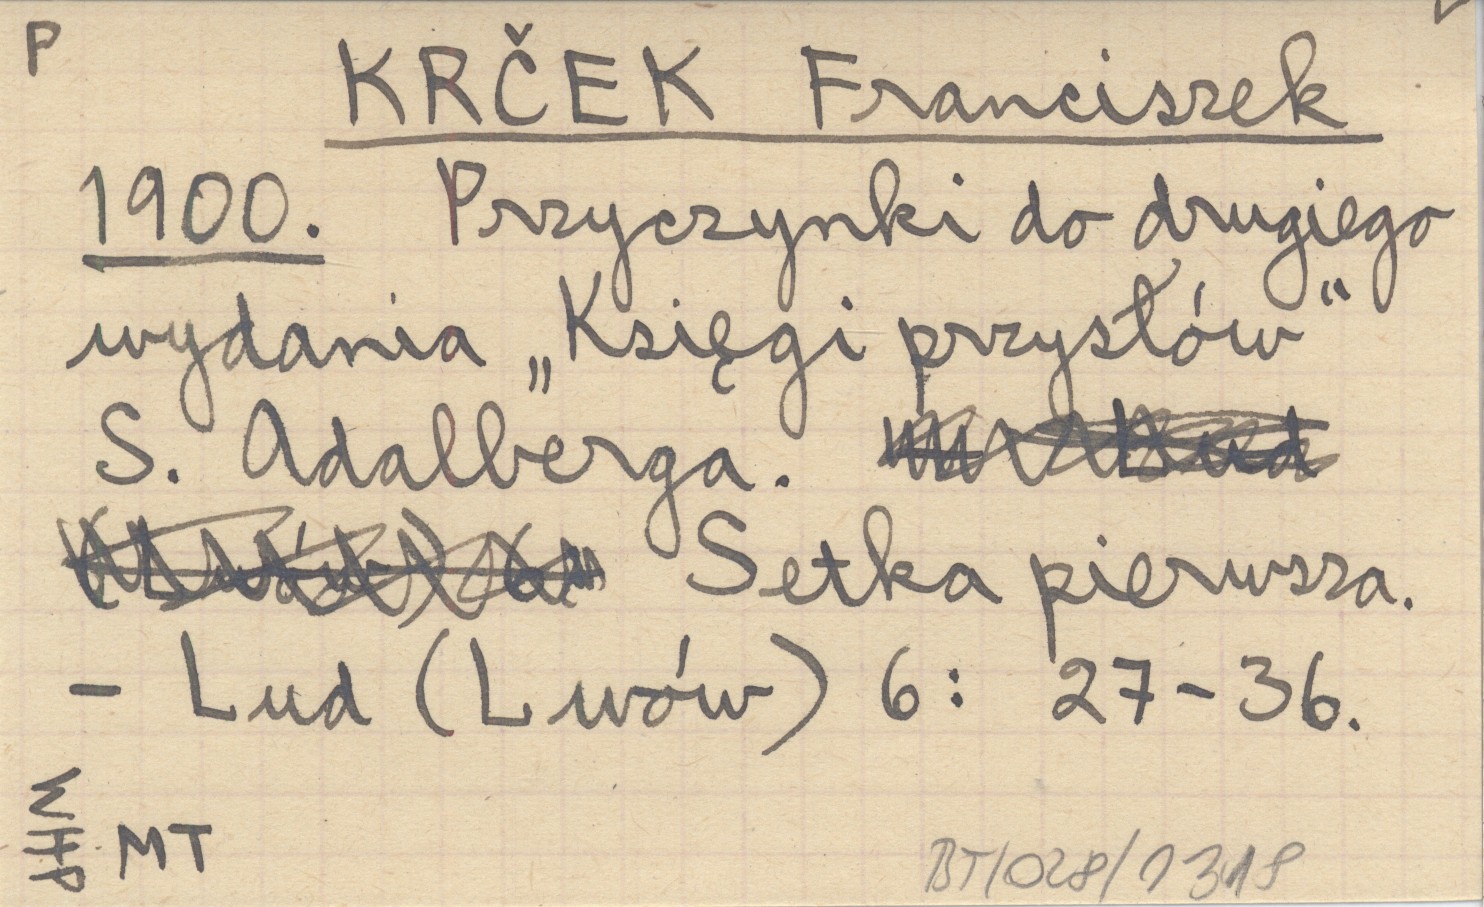 P
KRČEK Franciszek
1900. Przyczynki do drugiego
wydania „Księgi przysłów“
S. Adalberga.
Setka pierwsza.
- Lud (Lwów) 6: 27-36.
MT
BT/028/1318